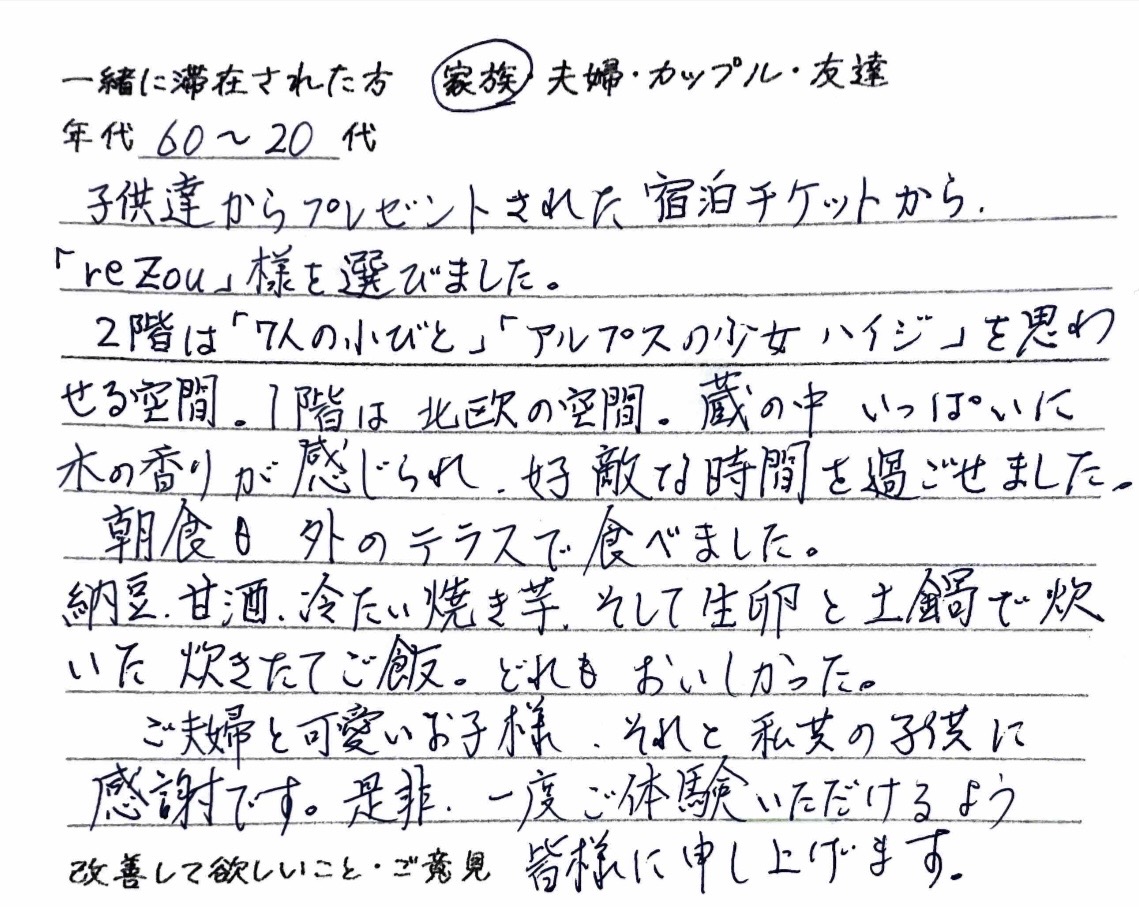 一緒に滞在された方 家族・夫婦・カップル・友達
年代 60〜20 代
子供達からプレゼントされた宿泊チケットから、
「reZou」様を選びました。
2階は「7人の小びと」「アルプスの少女ハイジ」を思わ
せる空間。1階は北欧の空間。蔵の中いっぱいに
木の香りが感じられ、好敵な時間を過ごせました。
朝食も外のテラスで食べました。
納豆、甘酒、冷たい焼き芋、そして生卵と土鍋で炊
いた炊きたてご飯。どれもおいしかった。
ご夫婦と可愛いお子様、それと私共の子供に
感謝です。是非、一度ご体験いただけるよう
改善して欲しいこと・ご意見 皆様に申し上げます。